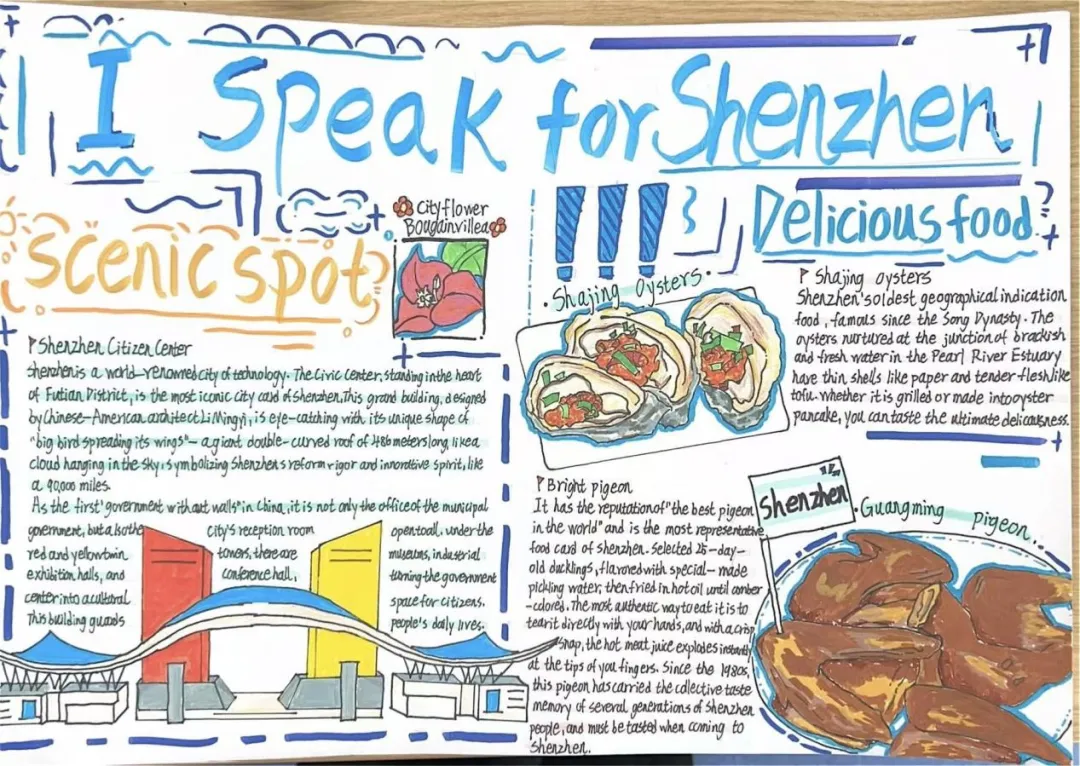 I Speak for Shenzhen
scenic spot
City flower
Bougainvillea
Shenzhen Citizen Center
shenzhen is a world-renowned city of technology. The Civic Center, standing in the heart
of Futian District, is the most iconic city card of Shenzhen. This grand building, designed
by Chinese-American architect Li Mingyi, is eye-catching with its unique shape of
"big bird spreading its wings" - a giant double-curved roof of 486 meters long, like a
cloud hanging in the sky, symbolizing Shenzhen's reform rigor and innovative spirit, like
a 90,000 miles.
As the first "government without walls" in China, it is not only the office of the municipal
government, but also the city's reception room open to all. under the
red and yellow twin towers, there are museums, industrial
exhibition halls, and conference hall, turning the government
center into a cultural space for citizens.
This building guards people's daily lives.
!!!
Delicious food
Shajing Oysters
Shajing oysters
Shenzhen's oldest geographical indication
food, famous since the Song Dynasty. The
oysters nurtured at the junction of brackish
and fresh water in the Pearl River Estuary
have thin shells like paper and tender flesh like
tofu. whether it is grilled or made into oyster
pancake, you can taste the ultimate deliciousness.
Bright pigeon
It has the reputation of "the best pigeon
in the world" and is the most representative
food card of shenzhen. Selected 25-day-
old ducklings, flavored with special-made
pickling water, then fried in hot oil until amber
-colored. The most authentic way to eat it is to
tear it directly with your hands, and with a crisp
snap, the hot meat juice explodes instantly
at the tips of you fingers. Since the 1980s,
this pigeon has carried the collective taste
memory of several generations of Shenzhen
people, and must be tasted when coming to
Shenzhen.
Shenzhen
Guangming Pigeon